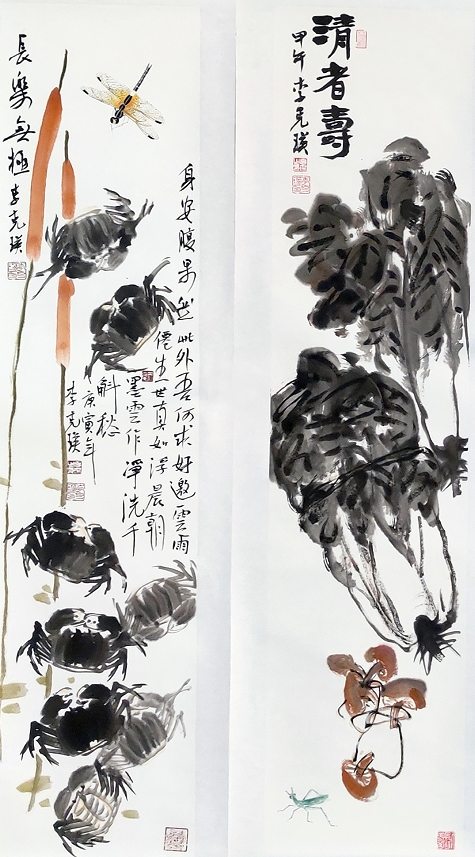 長樂無極 李克瑛
身安腹果
此外吾何求好邀雲雨
生一世真如浮晨朝
墨雲作淨洗千
斛愁
庚寅年
李克瑛
清者壽
甲午 李克瑛